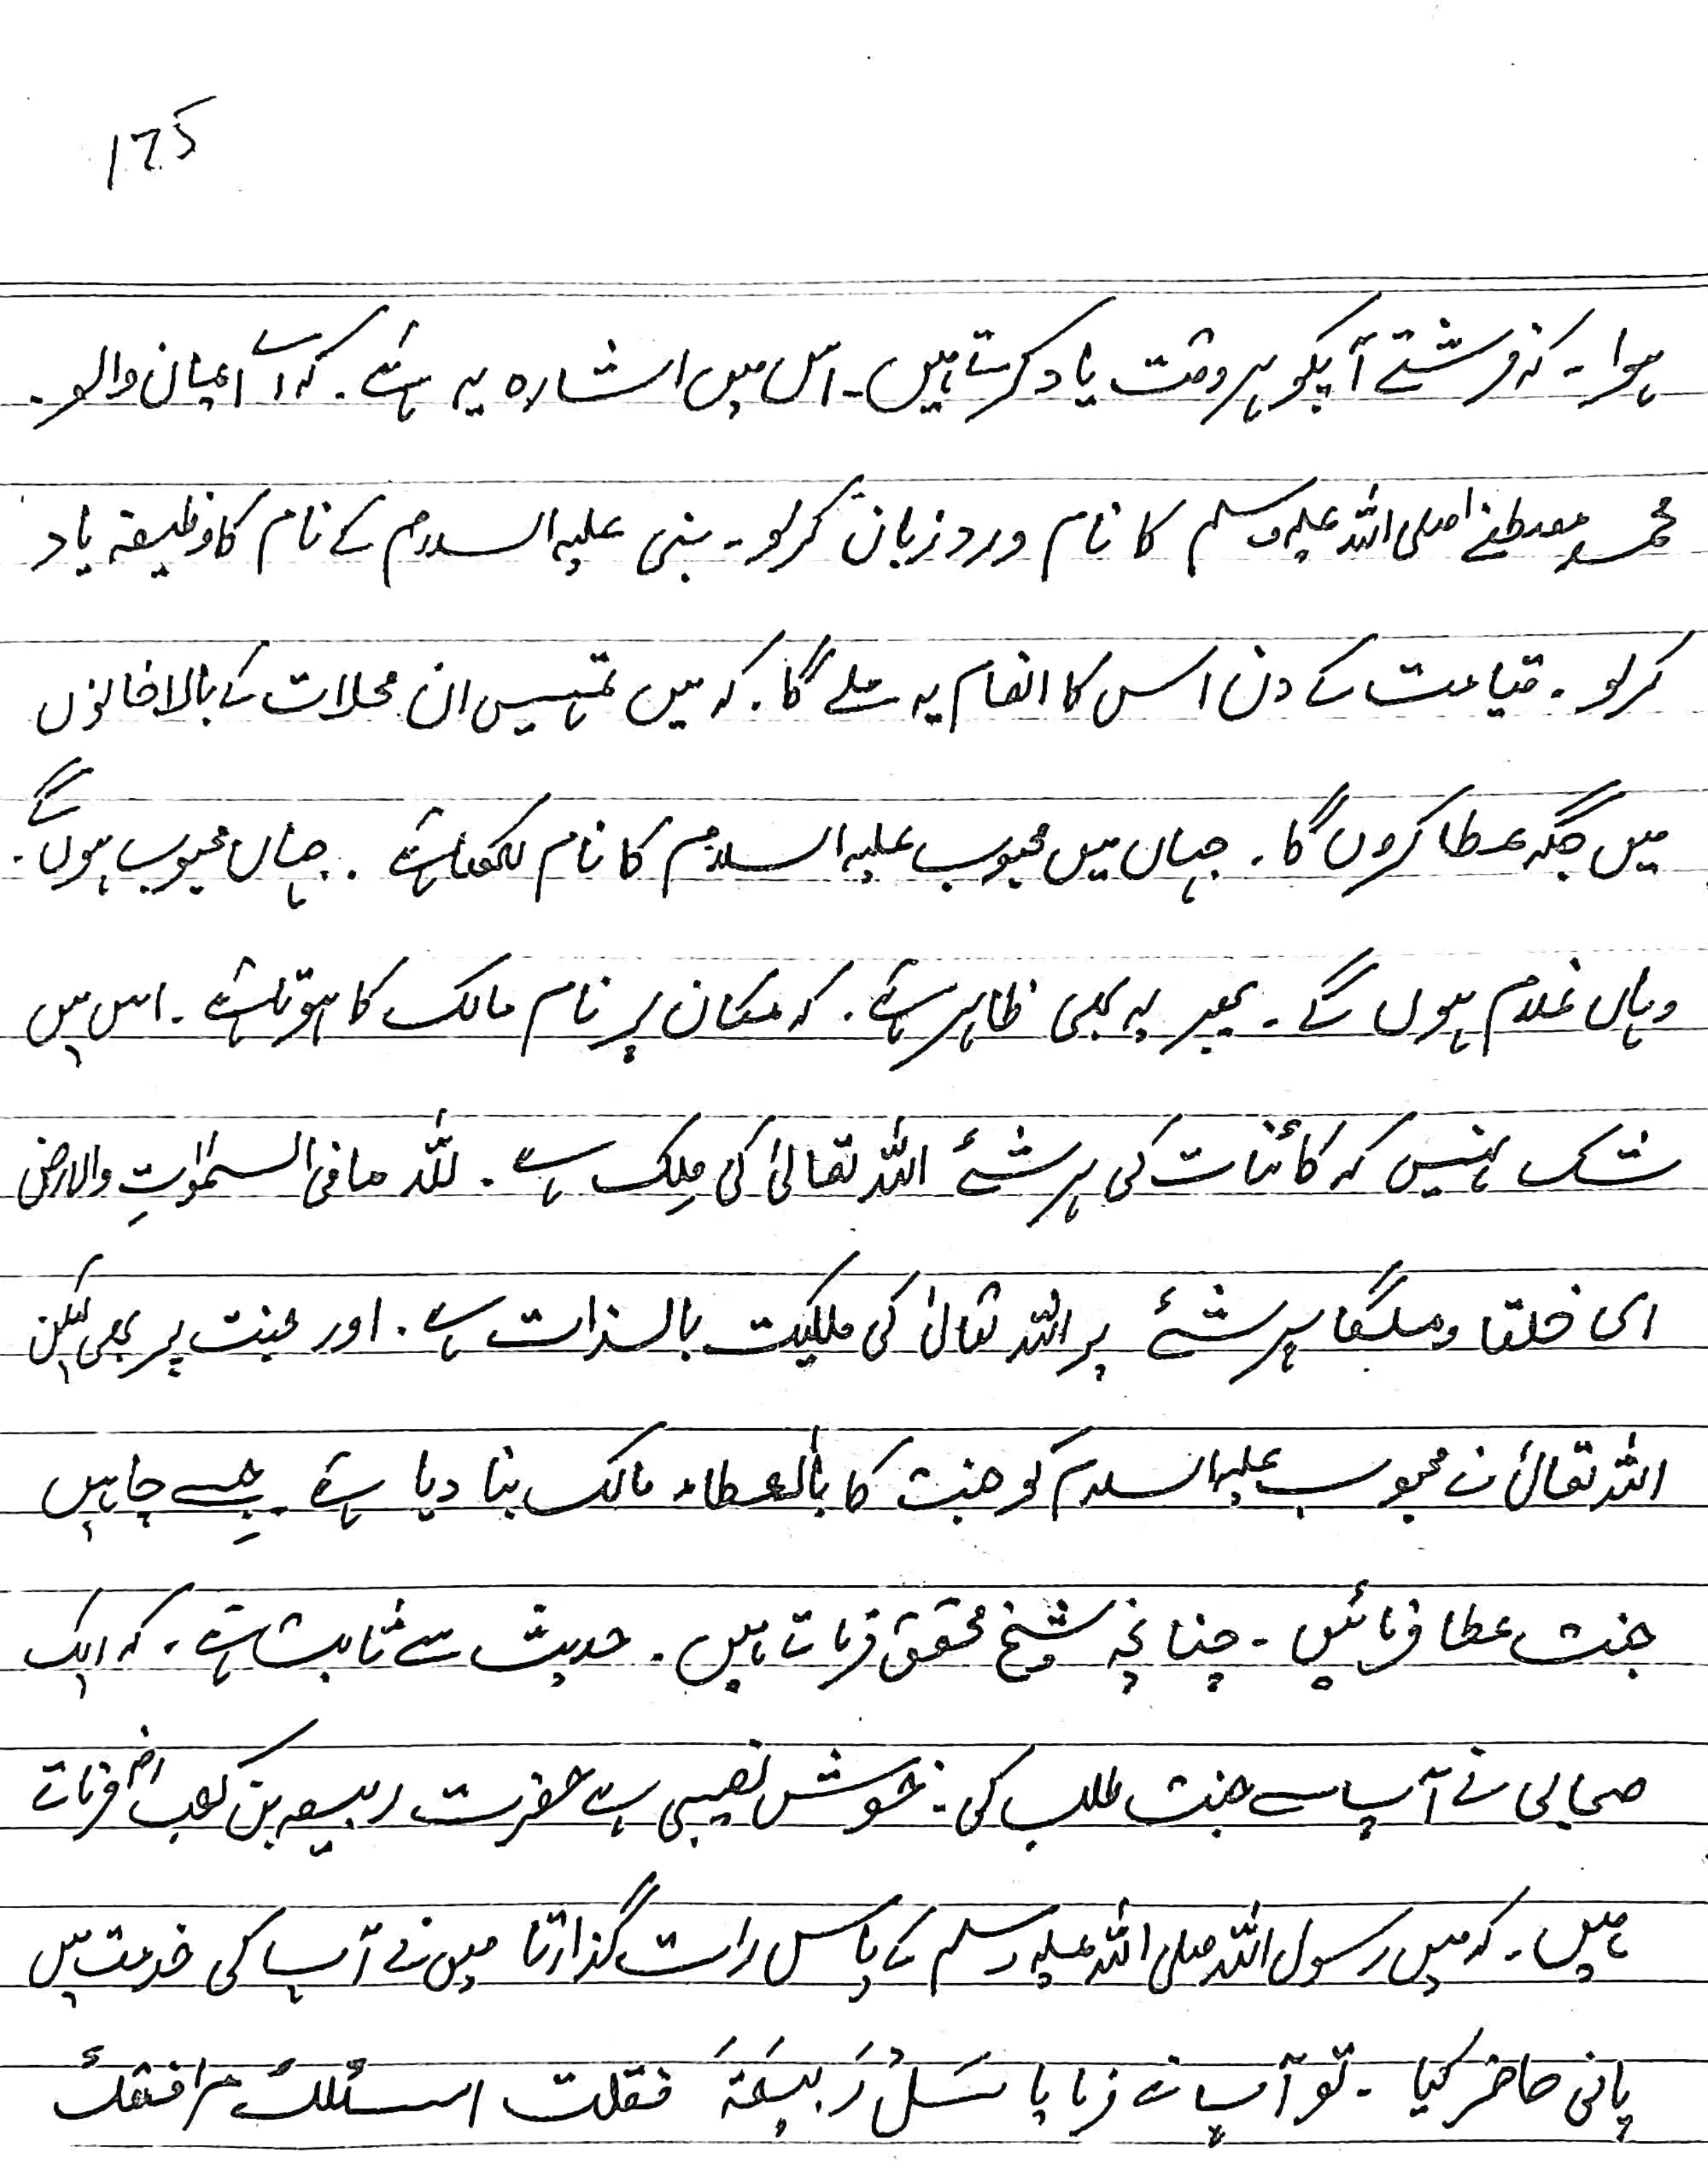 175
ہوا۔ کہ فرشتے آپکو ہر وقت یاد کرتے ہیں۔ اس میں اشارہ یہ ہے۔ کہ اے ایمان والو۔
محمد مصطفےٰ صلی اللہ علیہ وسلم کا نام ورد زبان کرلو۔ نبی علیہ السلام کے نام کا وظیفہ یاد
کرلو۔ قیامت کے دن اس کا انعام یہ ملے گا۔ کہ میں تمہیں ان محلات کے بالا خانوں
میں جگہ عطا کروں گا۔ جہاں میں محبوب علیہ السلام کا نام لکھا ہے۔ جہاں محبوب ہوں گے۔
وہاں غلام ہوں گے۔ پھر یہ بھی ظاہر ہے۔ کہ مکان پر نام مالک کا ہوتا ہے۔ اس میں
شک نہیں کہ کائنات کی ہر شئے اللہ تعالیٰ کی مِلک ہے۔ للہ مافی السمٰوٰتِ والارض
ای خلقا وملکا ہر شئے پر اللہ تعالیٰ کی ملکیت بالذات ہے۔ اور جنت پر بھی لیکن
اللہ تعالیٰ نے محبوب علیہ السلام کو جنت کا بالعطاء مالک بنا دیا ہے۔ جِسے چاہیں
جنت عطا فرمائیں۔ چنانچہ شیخ محقق فرماتے ہیں۔ حدیث سے ثابت ہے۔ کہ ایک
صحابی نے آپ سے جنت طلب کی۔ خوش نصیبی ہے حضرت ربیعہ بن کعب رض فرماتے
ہیں۔ کہ میں رسول اللہ صلی اللہ علیہ وسلم کے پاس رات گذارتا میں نے آپ کی خدمت میں
پانی حاضر کیا۔ تو آپ نے فرمایا سَلْ رَبیعَۃَ فقلت اسئلک مرافقتک